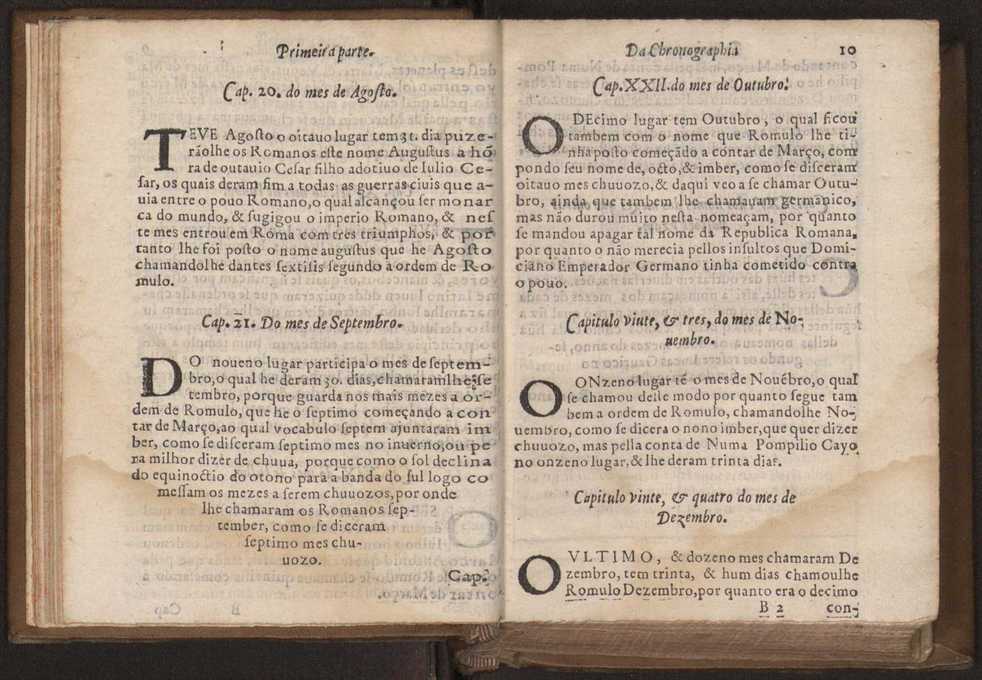 Primeira parte.
Cap. 20. do mes de Agosto.
TEVE Agosto o oitauo lugar tem 31. dia puze-
rãolhe os Romanos este nome Augustus a hõ
ra de outauio Cesar filho adotiuo de Iulio Ce-
sar, os quais deram fim a todas as guerras ciuis que a-
uia entre o pouo Romano, o qual alcançou ser monar
ca do mundo, & sugigou o imperio Romano, & nes
te mes entrou em Roma com tres triumphos, & por
tanto lhe foi posto o nome augustus que he Agosto
chamandolhe dantes sextilis segundo a ordem de Ro
mulo.
Cap. 21. Do mes de Septembro.
DO noueno lugar participa o mes de septem-
bro, o qual he deram 30. dias, chamaramlhe se
tembro, porque guarda nos mais mezes a or-
dem de Romulo, que he o septimo começando a con
tar de Março, ao qual vocabulo septem ajuntaram im
ber, como se disceram septimo mes no inuerno, ou pe
ra milhor dizer de chuua, porque como o sol declina
do equinoctio do otono para a banda do sul logo co
messam os mezes a serem chuuozos, por onde
lhe chamaram os Romanos sep-
tember, como se diceram
septimo mes chu-
uozo.
Cap.
Da Chronographia 10
Cap. XXII. do mes de Outubro.
ODEcimo lugar tem Outubro, o qual ficou
tambem com o nome que Romulo lhe ti-
nha posto começãdo a contar de Março, com
pondo seu nome de, octo, & imber, como se disceram
oitauo mes chuuozo, & daqui veo a se chamar Outu-
bro, ainda que tambem lhe chamauam germanico,
mas não durou muito nesta nomeaçam, por quanto
se mandou apagar tal nome da Republica Romana,
por quanto o não merecia pellos insultos que Domi-
ciano Emperador Germano tinha cometido contra
o pouo.
Capitulo viute, & tres, do mes de No-
uembro.
OONzeno lugar tẽ o mes de Nouẽbro, o qual
se chamou deste modo por quanto segue tam
bem a ordem de Romulo, chamandolhe No-
uembro, como se dicera o nono imber, que quer dizer
chuuozo, mas pella conta de Numa Pompilio Cayo
no onzeno lugar, & lhe deram trinta dias.
Capitulo vinte, & quatro do mes de
Dezembro.
OVLTIMO, & dozeno mes chamaram De
zembro, tem trinta, & hum dias chamoulhe
Romulo Dezembro, por quanto era o decimo
B 2 con-